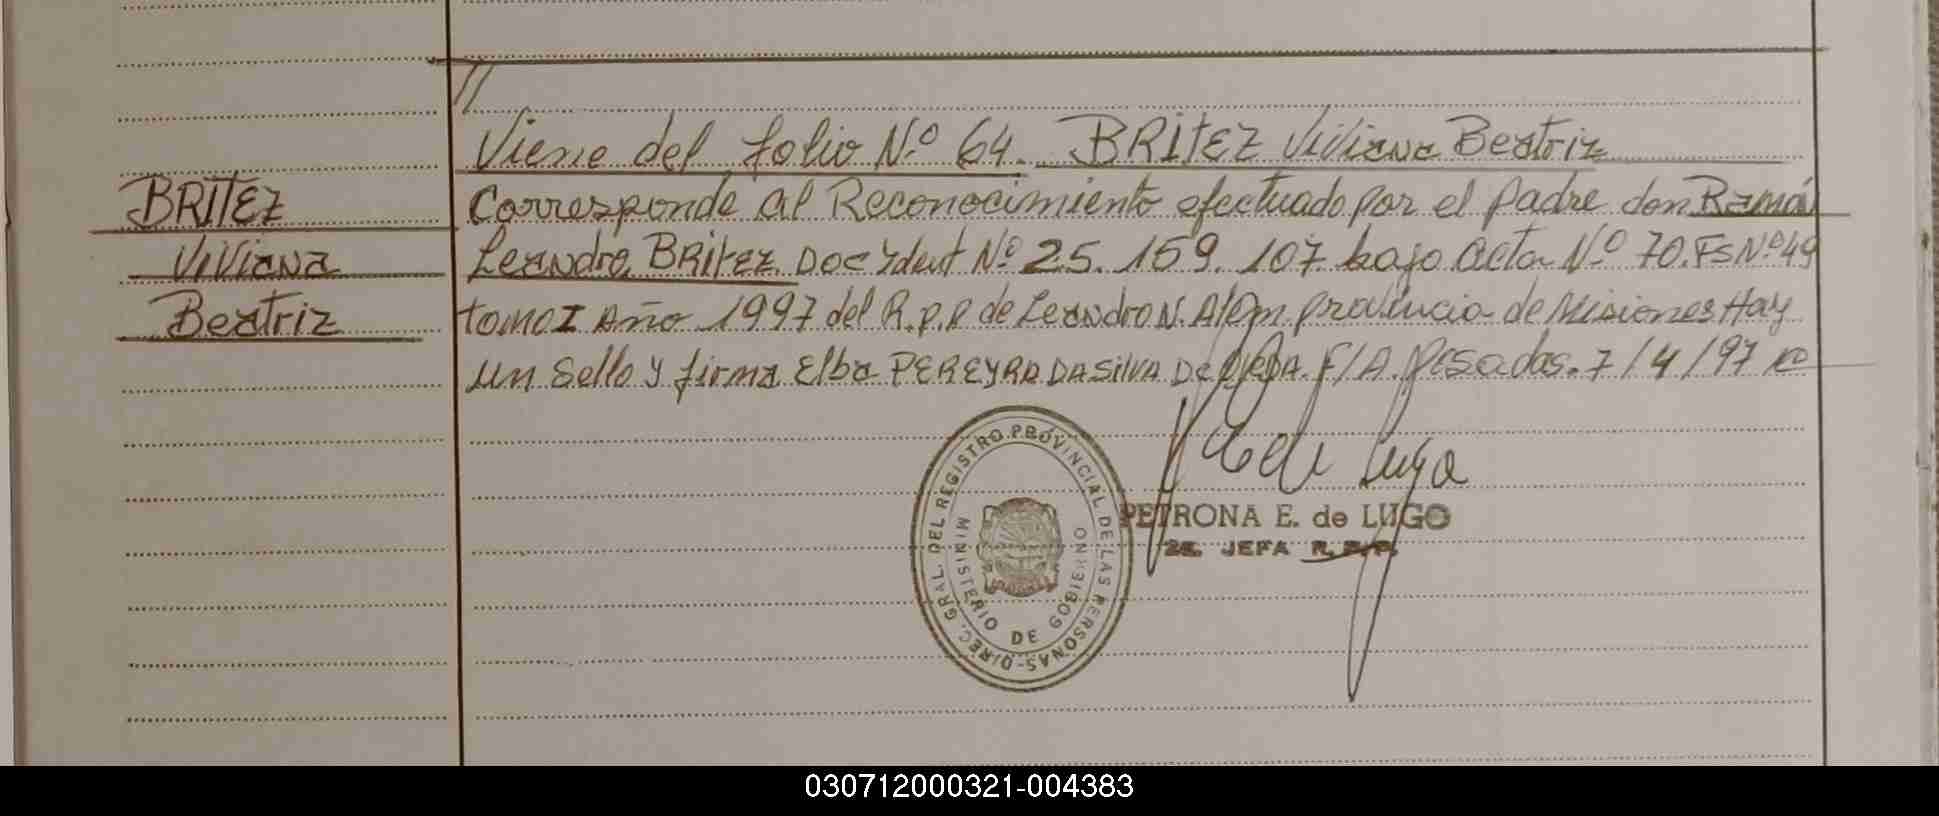 //
Viene del folio Nº 64. BRITEZ Viviana Beatriz
BRITEZ
Viviana
Beatriz
Corresponde al Reconocimiento efectuado por el padre don Ramón
Leandro BRITEZ Doc Ydent Nº 25.159.107 bajo acta Nº 70.FS Nº 49
tomo I Año 1997 del R.p.p de Leandro N. Alem provincia de Misiones Hay
un Sello y firma Elba PEREYRA DA SILVA De F/A. Posadas. 7/4/97
de Lugo
PETRONA E. de LUGO
JEFA R.P.P.
DIREC. GRAL. DEL REGISTRO PROVINCIAL DE LAS PERSONAS-
MINISTERIO DE GOBIERNO
030712000321-004383